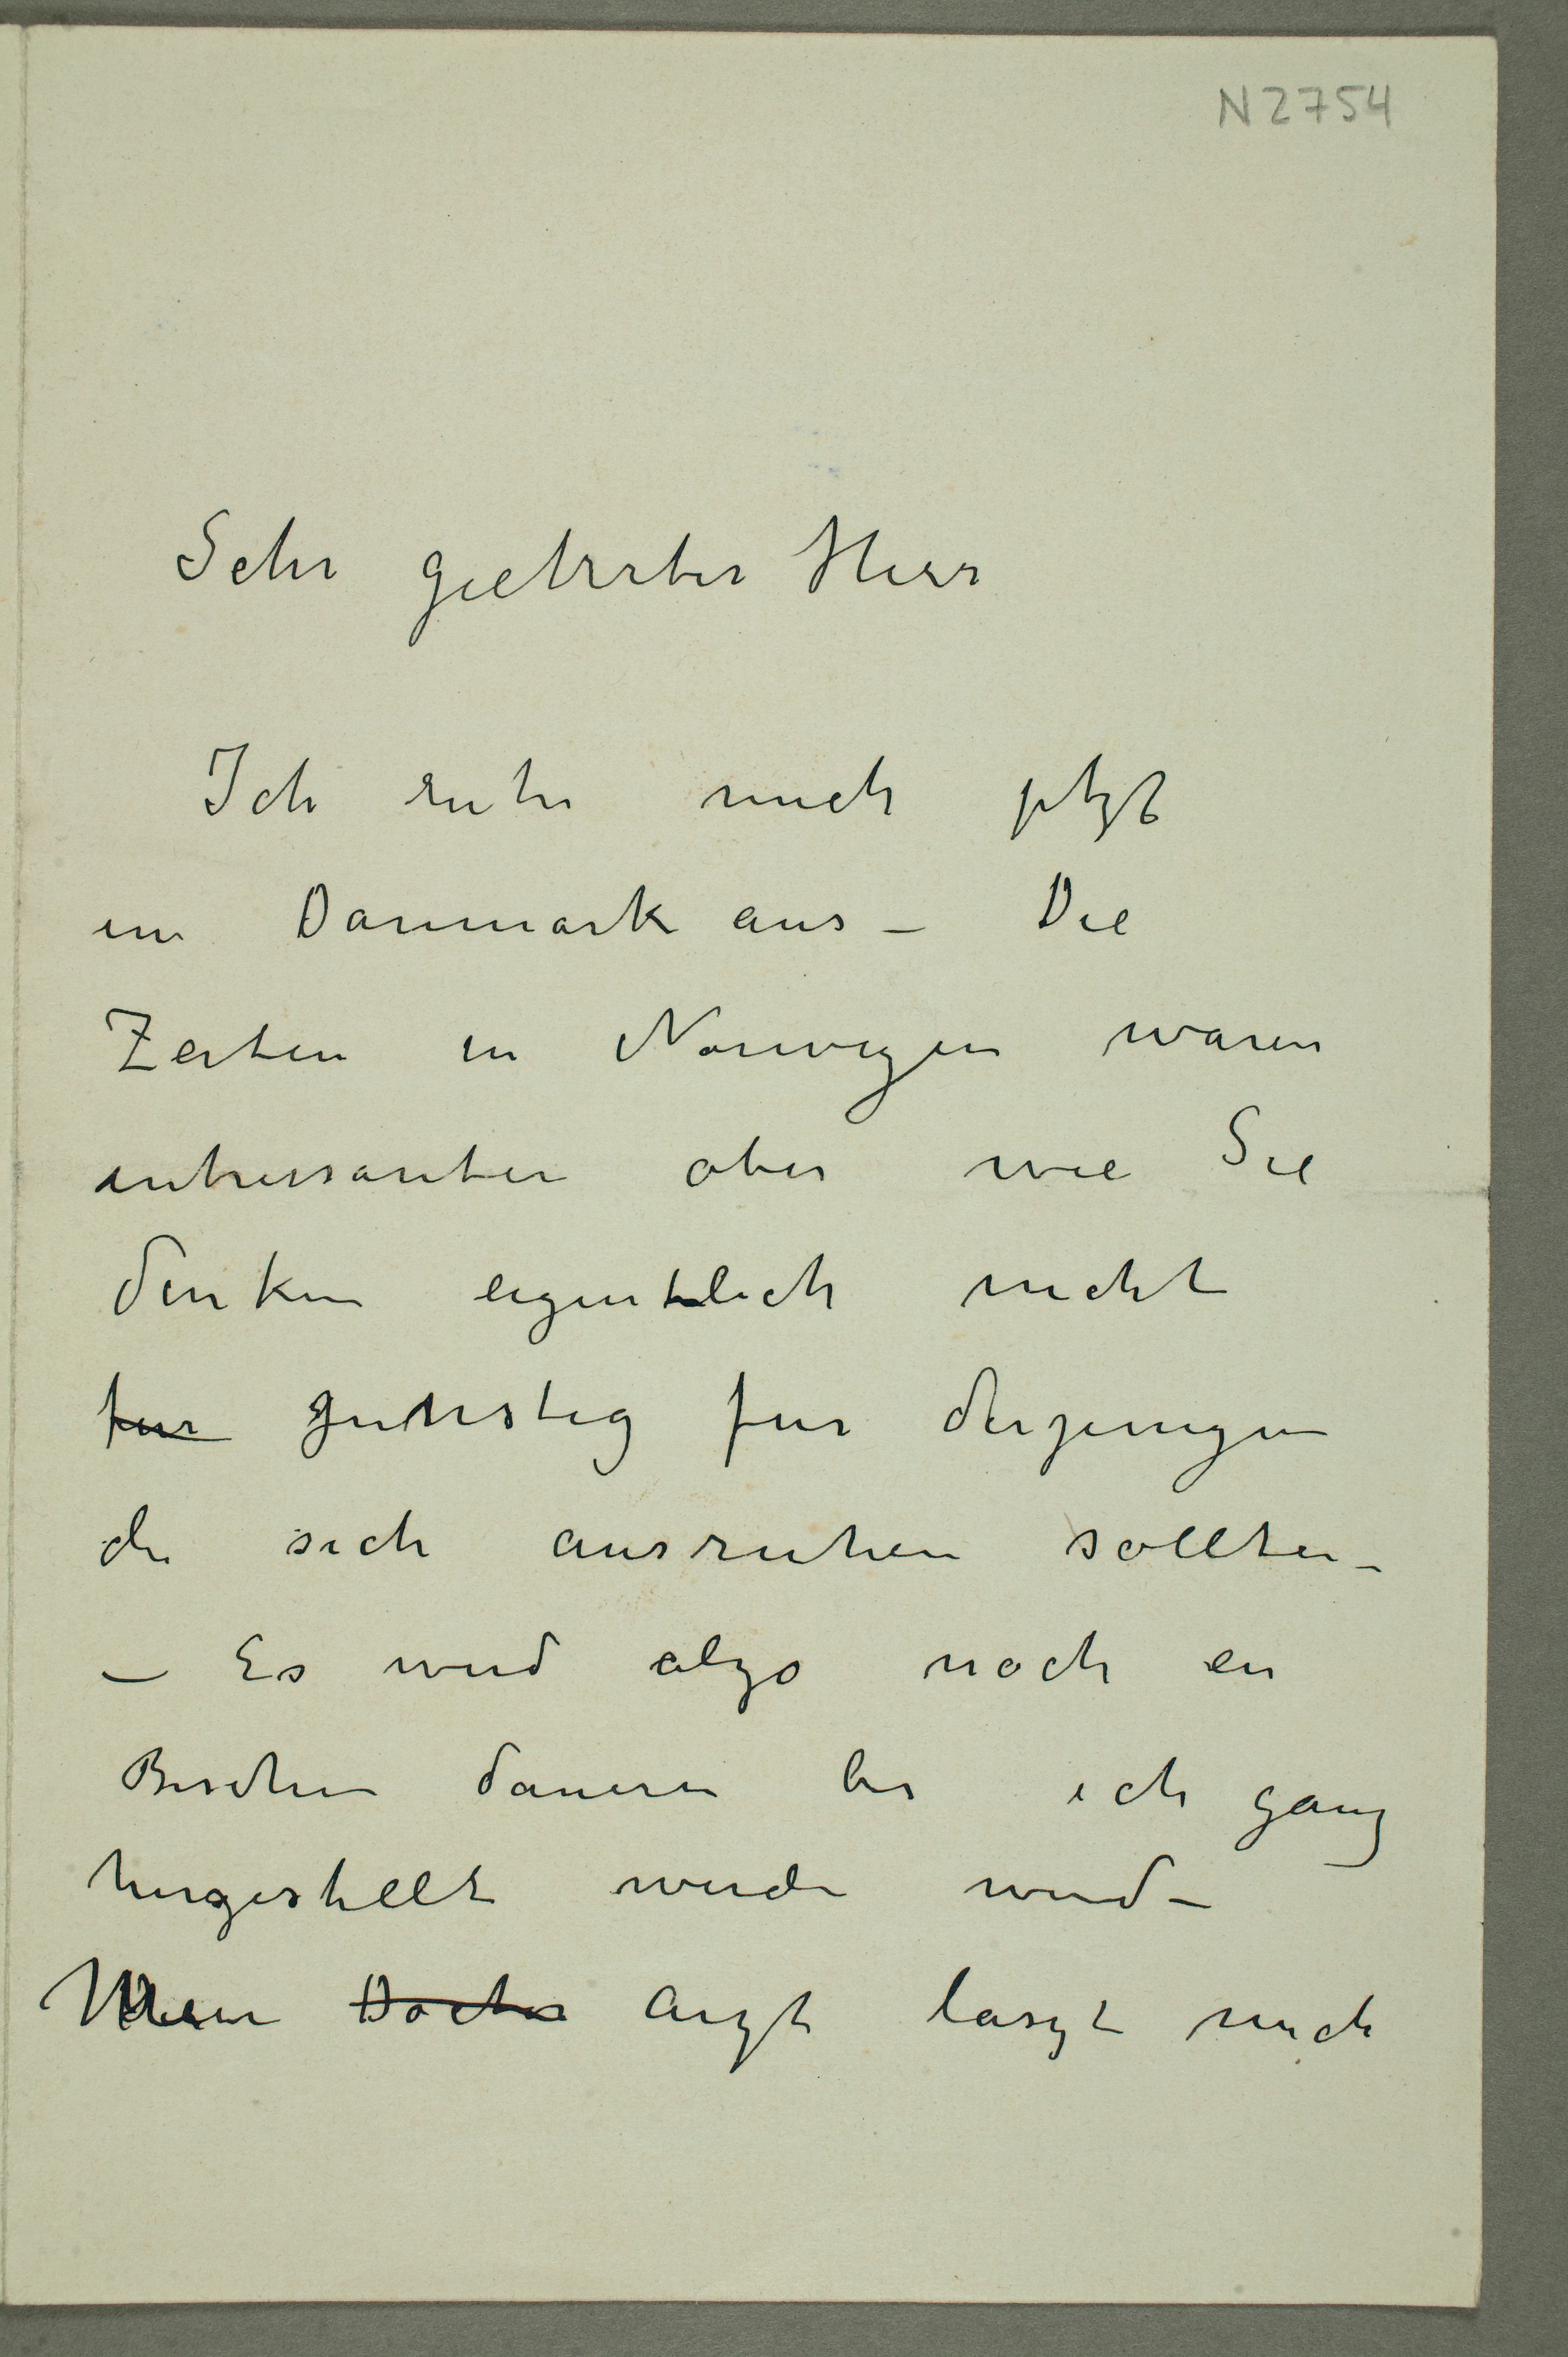 N 2754
Sehr geehrter Herr
Ich ruhe mich jetzt
in Danmark aus –  Die
Zeiten in Norwegen waren
intressanten aber wie Sie
denken eigentlich nicht
fur gunstig fur derjenigen
die sich ausruhen sollten –
– Es wird alzo noch ein
Bischen dauern bis ich ganz
hergestellt werde werd –
Mein Doctor Arzt laszt mich